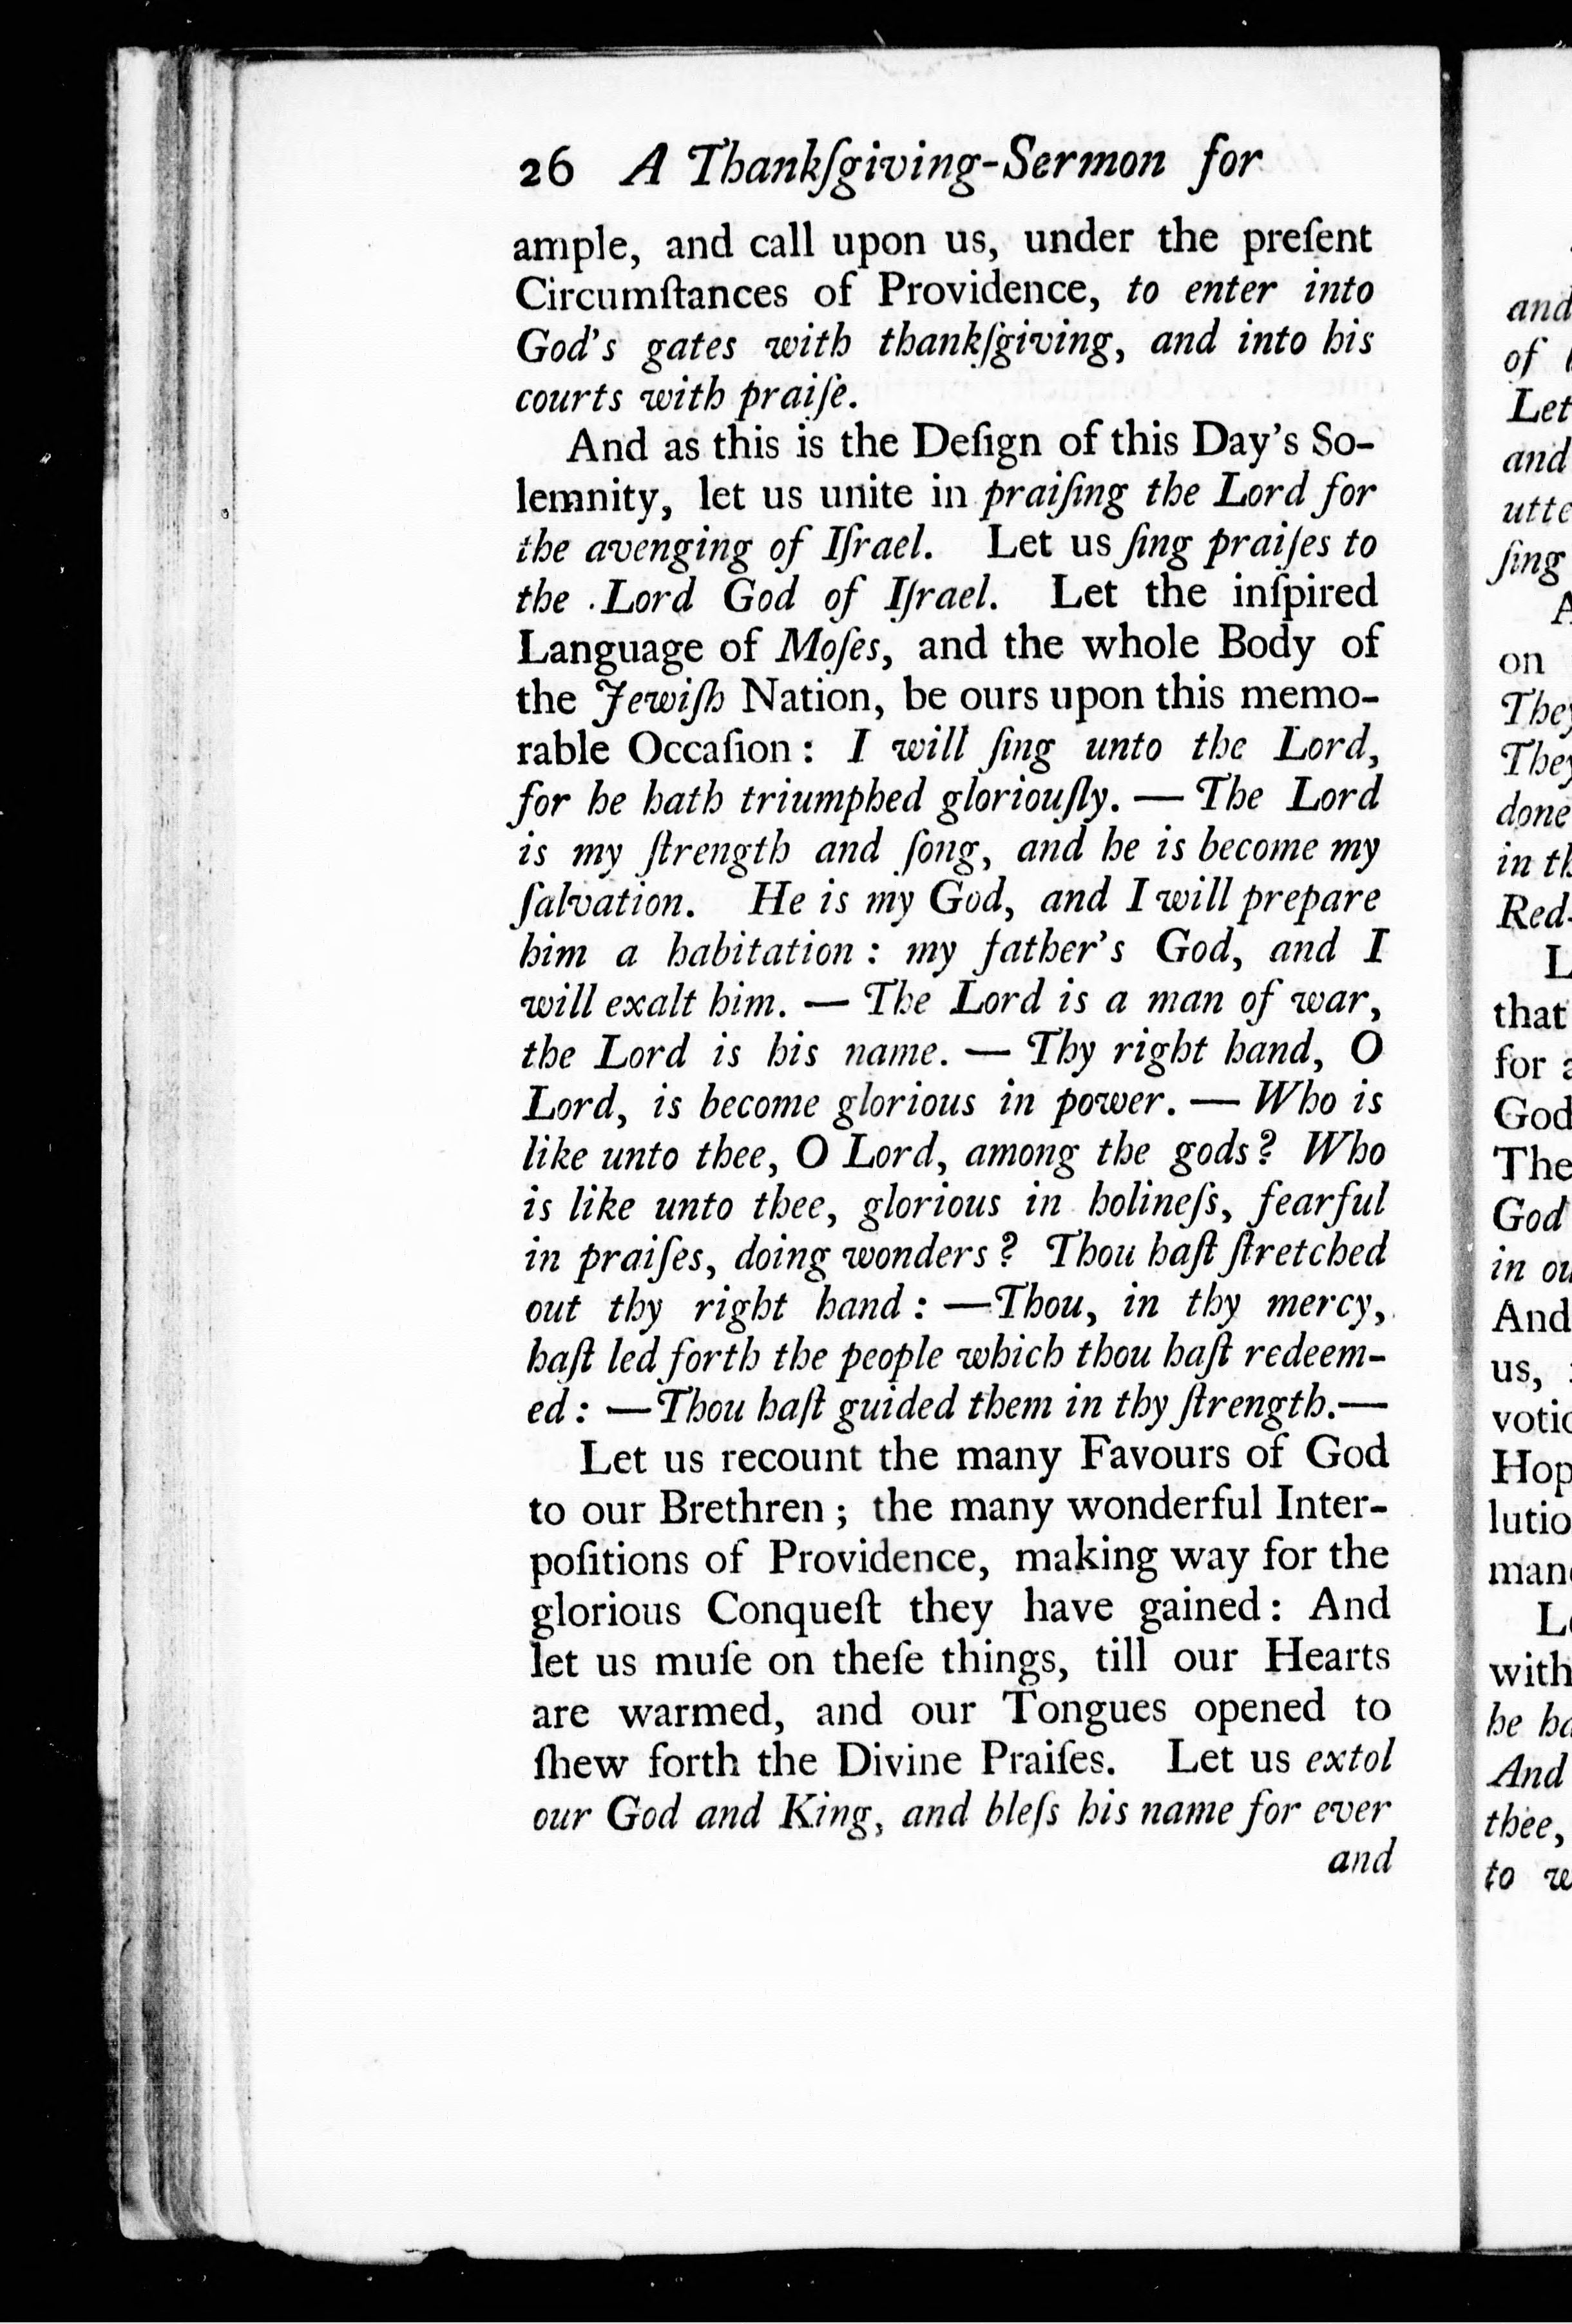 26 A Thankſgiving-Sermon for
ample, and call upon us, under the preſent
Circumſtances of Providence, to enter into
God's gates with thankſgiving, and into his
courts with praiſe.
And as this is the Deſign of this Day's So-
lemnity, let us unite in praiſing the Lord for
the avenging of Iſrael. Let us ſing praiſes to
the Lord God of Iſrael. Let the inſpired
Language of Moſes, and the whole Body of
the Jewiſh Nation, be ours upon this memo-
rable Occaſion: I will ſing unto the Lord,
for he hath triumphed gloriouſly. — The Lord
is my ſtrength and ſong, and he is become my
ſalvation. He is my God, and I will prepare
him a habitation: my father's God, and I
will exalt him. — The Lord is a man of war,
the Lord is his name. — Thy right hand, O
Lord, is become glorious in power. — Who is
like unto thee, O Lord, among the gods? Who
is like unto thee, glorious in holineſs, fearful
in praiſes, doing wonders? Thou haſt ſtretched
out thy right hand: —Thou, in thy mercy,
haſt led forth the people which thou haſt redeem-
ed: —Thou haſt guided them in thy ſtrength.—
Let us recount the many Favours of God
to our Brethren; the many wonderful Inter-
poſitions of Providence, making way for the
glorious Conqueſt they have gained: And
let us muſe on theſe things, till our Hearts
are warmed, and our Tongues opened to
ſhew forth the Divine Praiſes. Let us extol
our God and King, and bleſs his name for ever
and
and
of
Let
and
ſing
on
They
They
done
in
Red-
that
for
God
The
God
in
And
us,
with
he
And
thee,
to